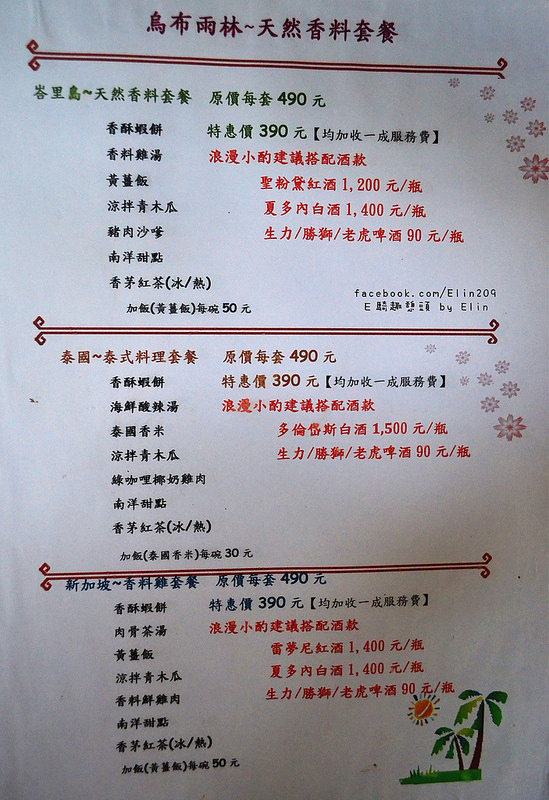 烏布雨林~天然香料套餐
峇里島~天然香料套餐 原價每套 490 元
香酥蝦餅 特惠價 390 元【均加收一成服務費】
香料雞湯 浪漫小酌建議搭配酒款
黃薑飯 聖粉黛紅酒 1,200 元/瓶
涼拌青木瓜 夏多內白酒 1,400 元/瓶
豬肉沙嗲 生力/勝獅/老虎啤酒 90 元/瓶
南洋甜點
香茅紅茶(冰/熱)
加飯(黃薑飯)每碗 50 元
facebook.com/Elin209
E騎趣憨頭 by Elin
泰國~泰式料理套餐 原價每套 490 元
香酥蝦餅 特惠價 390 元【均加收一成服務費】
海鮮酸辣湯 浪漫小酌建議搭配酒款
泰國香米 多倫岱斯白酒 1,500 元/瓶
涼拌青木瓜 生力/勝獅/老虎啤酒 90 元/瓶
綠咖哩椰奶雞肉
南洋甜點
香茅紅茶(冰/熱)
加飯(泰國香米)每碗 30 元
新加坡~香料雞套餐 原價每套 490 元
香酥蝦餅 特惠價 390 元【均加收一成服務費】
肉骨茶湯 浪漫小酌建議搭配酒款
黃薑飯 雷夢尼紅酒 1,400 元/瓶
涼拌青木瓜 夏多內白酒 1,400 元/瓶
香料鮮雞肉 生力/勝獅/老虎啤酒 90 元/瓶
南洋甜點
香茅紅茶(冰/熱)
加飯(黃薑飯)每碗 50 元